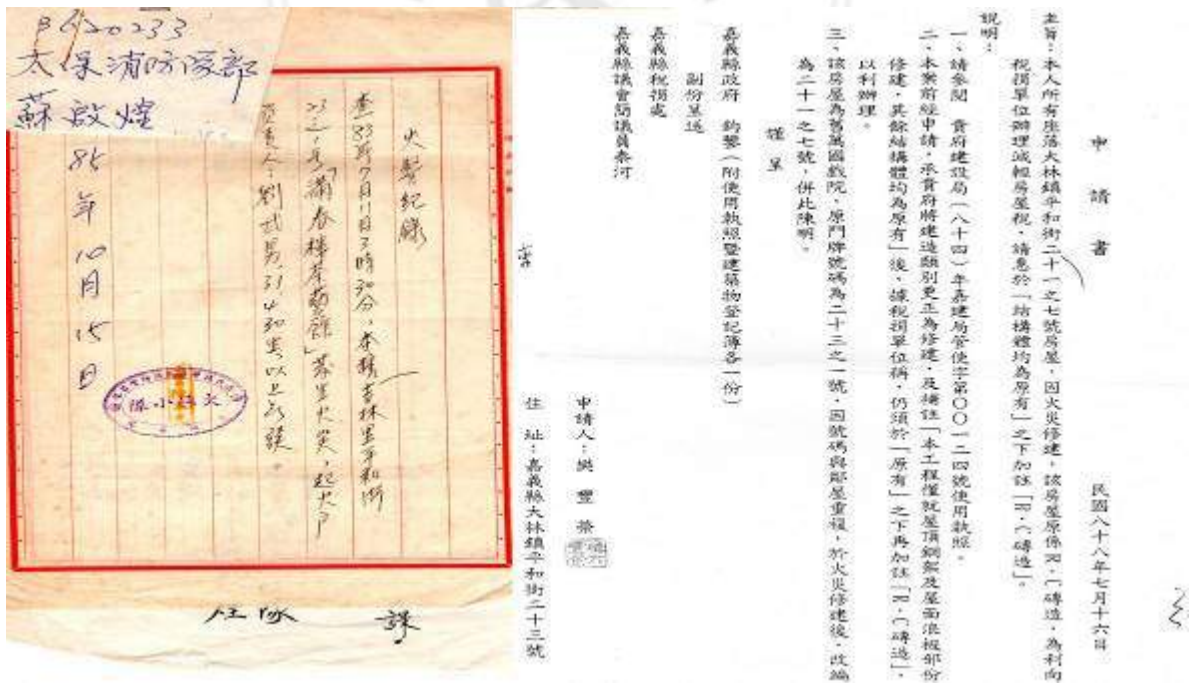 申請書
民國八十八年七月十六日
主旨：本人所有座落大林鎮平和街二十一之七號房屋，因火災修建，該房屋原係R．C磚造，為利向
稅捐單位辦理減輕房屋稅，請惠於「結構體均為原有」之下加註「R．C磚造」。
說明：
一、請參閱　貴府建設局（八十四）年嘉建局管使字第〇〇一二四號使用執照。
二、本案前經申請，承貴府將建造類別更正為修建，及補註「本工程僅就屋頂鋼架及屋面浪板部份
修建，其餘結構體均為原有」後，據稅捐單位稱，仍須於「原有」之下再加註「R．C磚造」，
以利辦理。
三、該房屋為舊萬國戲院，原門牌號碼為二十三之一號，因號碼與鄰屋重複，於火災修建後，改編
為二十一之七號，併此陳明。
謹呈
嘉義縣政府　鈞鑒（附使用執照暨建築物登記簿各一份）
副份呈送
嘉義縣稅捐處
嘉義縣議會簡議員泰河
申請人：　豐榮
住　址：嘉義縣大林鎮平和街二十三號
太保消防隊部
蘇啟煌
火警紀錄
查83年7月11日3時30分，本轄吉林里平和街
23之1號「滿春樓茶藝館」發生火災，起火戶
負責人：劉武男，31.4.30生以上記錄。
85年10月15日